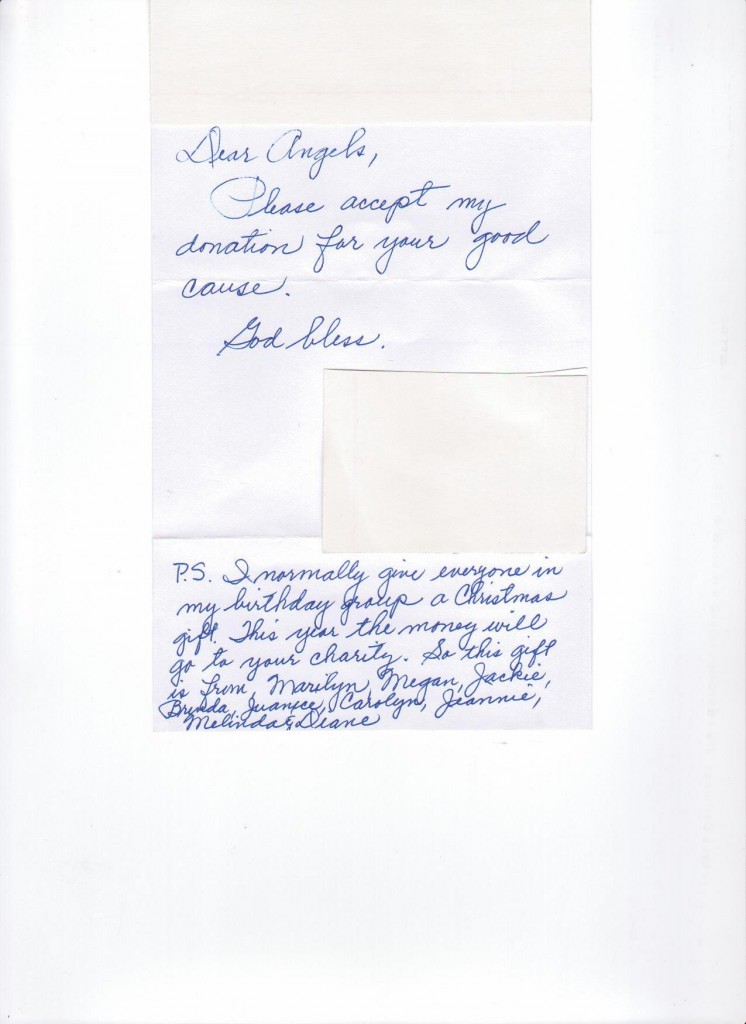 Dear Angels,
Please accept my
donation for your good
cause.
God bless.
P.S. I normally give everyone in
my birthday group a Christmas
gift. This year the money will
go to your charity. So this gift
is from, Marilyn, Megan, Jackie,
Brenda, Juanice, Carolyn, Jeannie,
Melinda & Deane